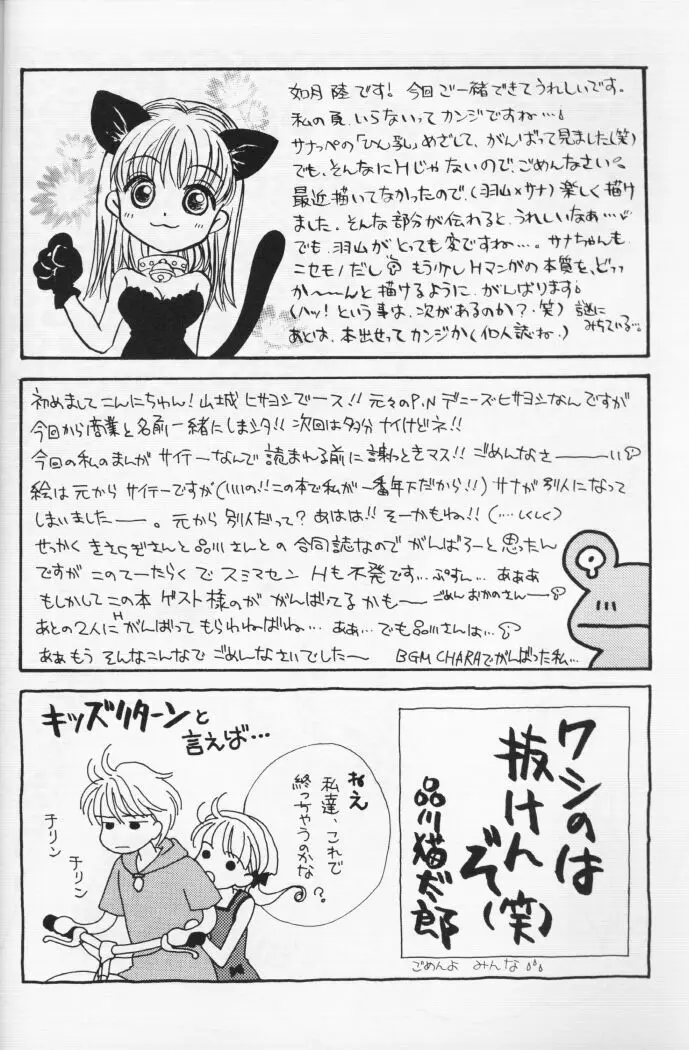 如月 陸です! 今回ご一緒できてうれしいです。
私の頁、いらないってカンジですね…!
サナッペの「ひん乳」めざして、がんばって見ました(笑)
でも、そんなにHじゃないので、ごめんなさい。
最近描いてなかったので、(羽山×サナ)楽しく描け
ました。そんな部分が伝わると、うれしいなぁ…
でも、羽山がとっても変ですね…。サナちゃんも
ニセモノだし もう少しHマンガの本質を、どっっ
か〜〜んと描けるように、がんばります
(ハッ! という事は、次があるのか?・笑) 謎に
みちている…。
あとは、本出せってカンジか(個人誌ね.)
初めまして こんにちゅん! 山城 ヒサヨシでース!! 元々のP.N デニーズヒサヨシなんですが
今回から商業と名前一緒にしまシタ!! 次回は多分ナイけどネ!!
今回の私のまんが サイテーなんで 読まれる前に謝っときマス!! ごめんなさ――い
絵は元からサイテーですが(いいの!!この本で私が一番年下だから!!) サナが別人になって
しまいました――。元から別人だって? あはは!! そーかもね!! (…しくしく)
せっかく きさらぎさんと品川さんとの 合同誌なので がんばろーと思ったん
ですが このてーたらくで スミマセン Hも不発です…ぷすん… あぁぁ
もしかしてこの本 ゲスト様のが がんばってるかも〜 ごめん おかのさん―
あとの2人に がんばって もらわねばね… ああ… でも品川さんは…
H
ああもう そんなこんなで ごめんなさいでした〜 BGM CHARAでがんばった私…
キッズリターンと
言えば…
ねえ
私達、これで
終っちゃうのかな
?
チリン
チリン
ワシのは
抜けん
ぞ(笑)
品川猫太郎
ごめんよ みんな